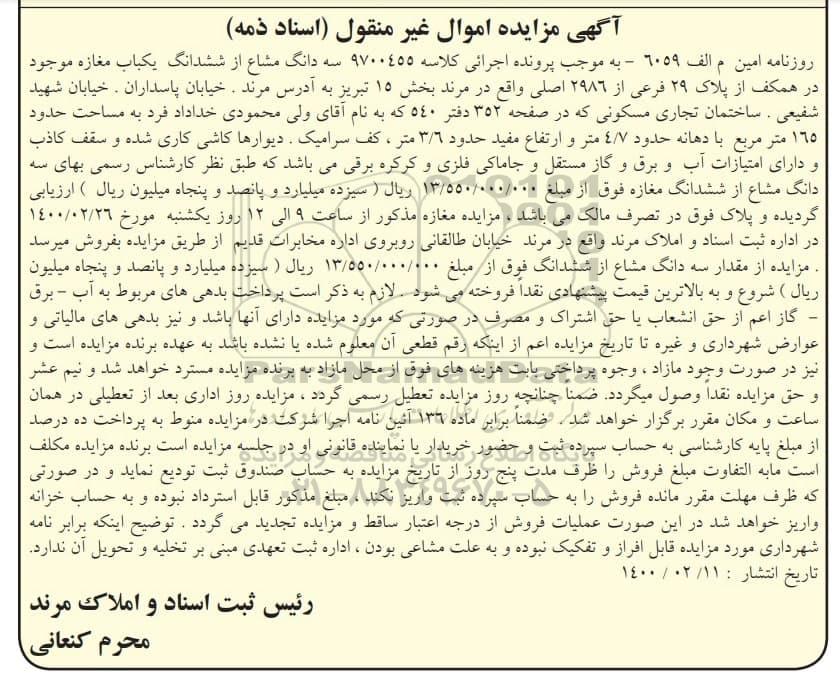 آگهی مزایده اموال غیر منقول (اسناد ذمه)
روزنامه امین م الف ۶۰۵۹ - به موجب پرونده اجرائی کلاسه ۹۷۰۰۴۵۵ سه دانگ مشاع از ششدانگ یکباب مغازه موجود
در همکف از پلاک ۲۹ فرعی از ۲۹۸۶ اصلی واقع در مرند بخش ۱۵ تبریز به آدرس مرند . خیابان پاسداران . خیابان شهید
شفیعی . ساختمان تجاری مسکونی که در صفحه ۳۵۲ دفتر ۵۴۰ که به نام آقای ولی محمودی خداداد فرد به مساحت حدود
۱۶۵ متر مربع با دهانه حدود ۴/۷ متر و ارتفاع مفید حدود ۳/۶ متر ، کف سرامیک . دیوارها کاشی کاری شده و سقف کاذب
و دارای امتیازات آب و برق و گاز مستقل و جاماکی فلزی و کرکره برقی می باشد که طبق نظر کارشناس رسمی بهای سه
دانگ مشاع از ششدانگ مغازه فوق از مبلغ ۱۳/۵۵۰/۰۰۰/۰۰۰ ریال ( سیزده میلیارد و پانصد و پنجاه میلیون ریال ) ارزیابی
گردیده و پلاک فوق در تصرف مالک می باشد ، مزایده مغازه مذکور از ساعت ۹ الی ۱۲ روز یکشنبه مورخ ۱۴۰۰/۰۲/۲۶
در اداره ثبت اسناد و املاک مرند واقع در مرند خیابان طالقانی روبروی اداره مخابرات قدیم از طریق مزایده بفروش میرسد
. مزایده از مقدار سه دانگ مشاع از ششدانگ فوق از مبلغ ۱۳/۵۵۰/۰۰۰/۰۰۰ ریال ( سیزده میلیارد و پانصد و پنجاه میلیون
ریال ) شروع و به بالاترین قیمت پیشنهادی نقداً فروخته می شود . لازم به ذکر است پرداخت بدهی های مربوط به آب - برق
- گاز اعم از حق انشعاب یا حق اشتراک و مصرف در صورتی که مورد مزایده دارای آنها باشد و نیز بدهی های مالیاتی و
عوارض شهرداری و غیره تا تاریخ مزایده اعم از اینکه رقم قطعی آن معلوم شده یا نشده باشد به عهده برنده مزایده است و
نیز در صورت وجود مازاد ، وجوه پرداختی بابت هزینه های فوق از محل مازاد به برنده مزایده مسترد خواهد شد و نیم عشر
و حق مزایده نقداً وصول میگردد. ضمناً چنانچه روز مزایده تعطیل رسمی گردد ، مزایده روز اداری بعد از تعطیلی در همان
ساعت و مکان مقرر برگزار خواهد شد . ضمناً برابر ماده ۱۳۶ آئین نامه اجرا شرکت در مزایده منوط به پرداخت ده درصد
از مبلغ پایه کارشناسی به حساب سپرده ثبت و حضور خریدار یا نماینده قانونی او در جلسه مزایده است برنده مزایده مکلف
است مابه التفاوت مبلغ فروش را ظرف مدت پنج روز از تاریخ مزایده به حساب صندوق ثبت تودیع نماید و در صورتی
که ظرف مهلت مقرر مانده فروش را به حساب سپرده ثبت واریز نکند ، مبلغ مذکور قابل استرداد نبوده و به حساب خزانه
واریز خواهد شد در این صورت عملیات فروش از درجه اعتبار ساقط و مزایده تجدید می گردد . توضیح اینکه برابر نامه
شهرداری مورد مزایده قابل افراز و تفکیک نبوده و به علت مشاعی بودن ، اداره ثبت تعهدی مبنی بر تخلیه و تحویل آن ندارد.
تاریخ انتشار : ۱۴۰۰ / ۰۲ / ۱۱
رئیس ثبت اسناد و املاک مرند
محرم کنعانی
ParsNamadData
پایگاه اطلاع رسانی مناقصه و مزایده
۰۲۱-۸۸۳۴۹۶۷۰-۵